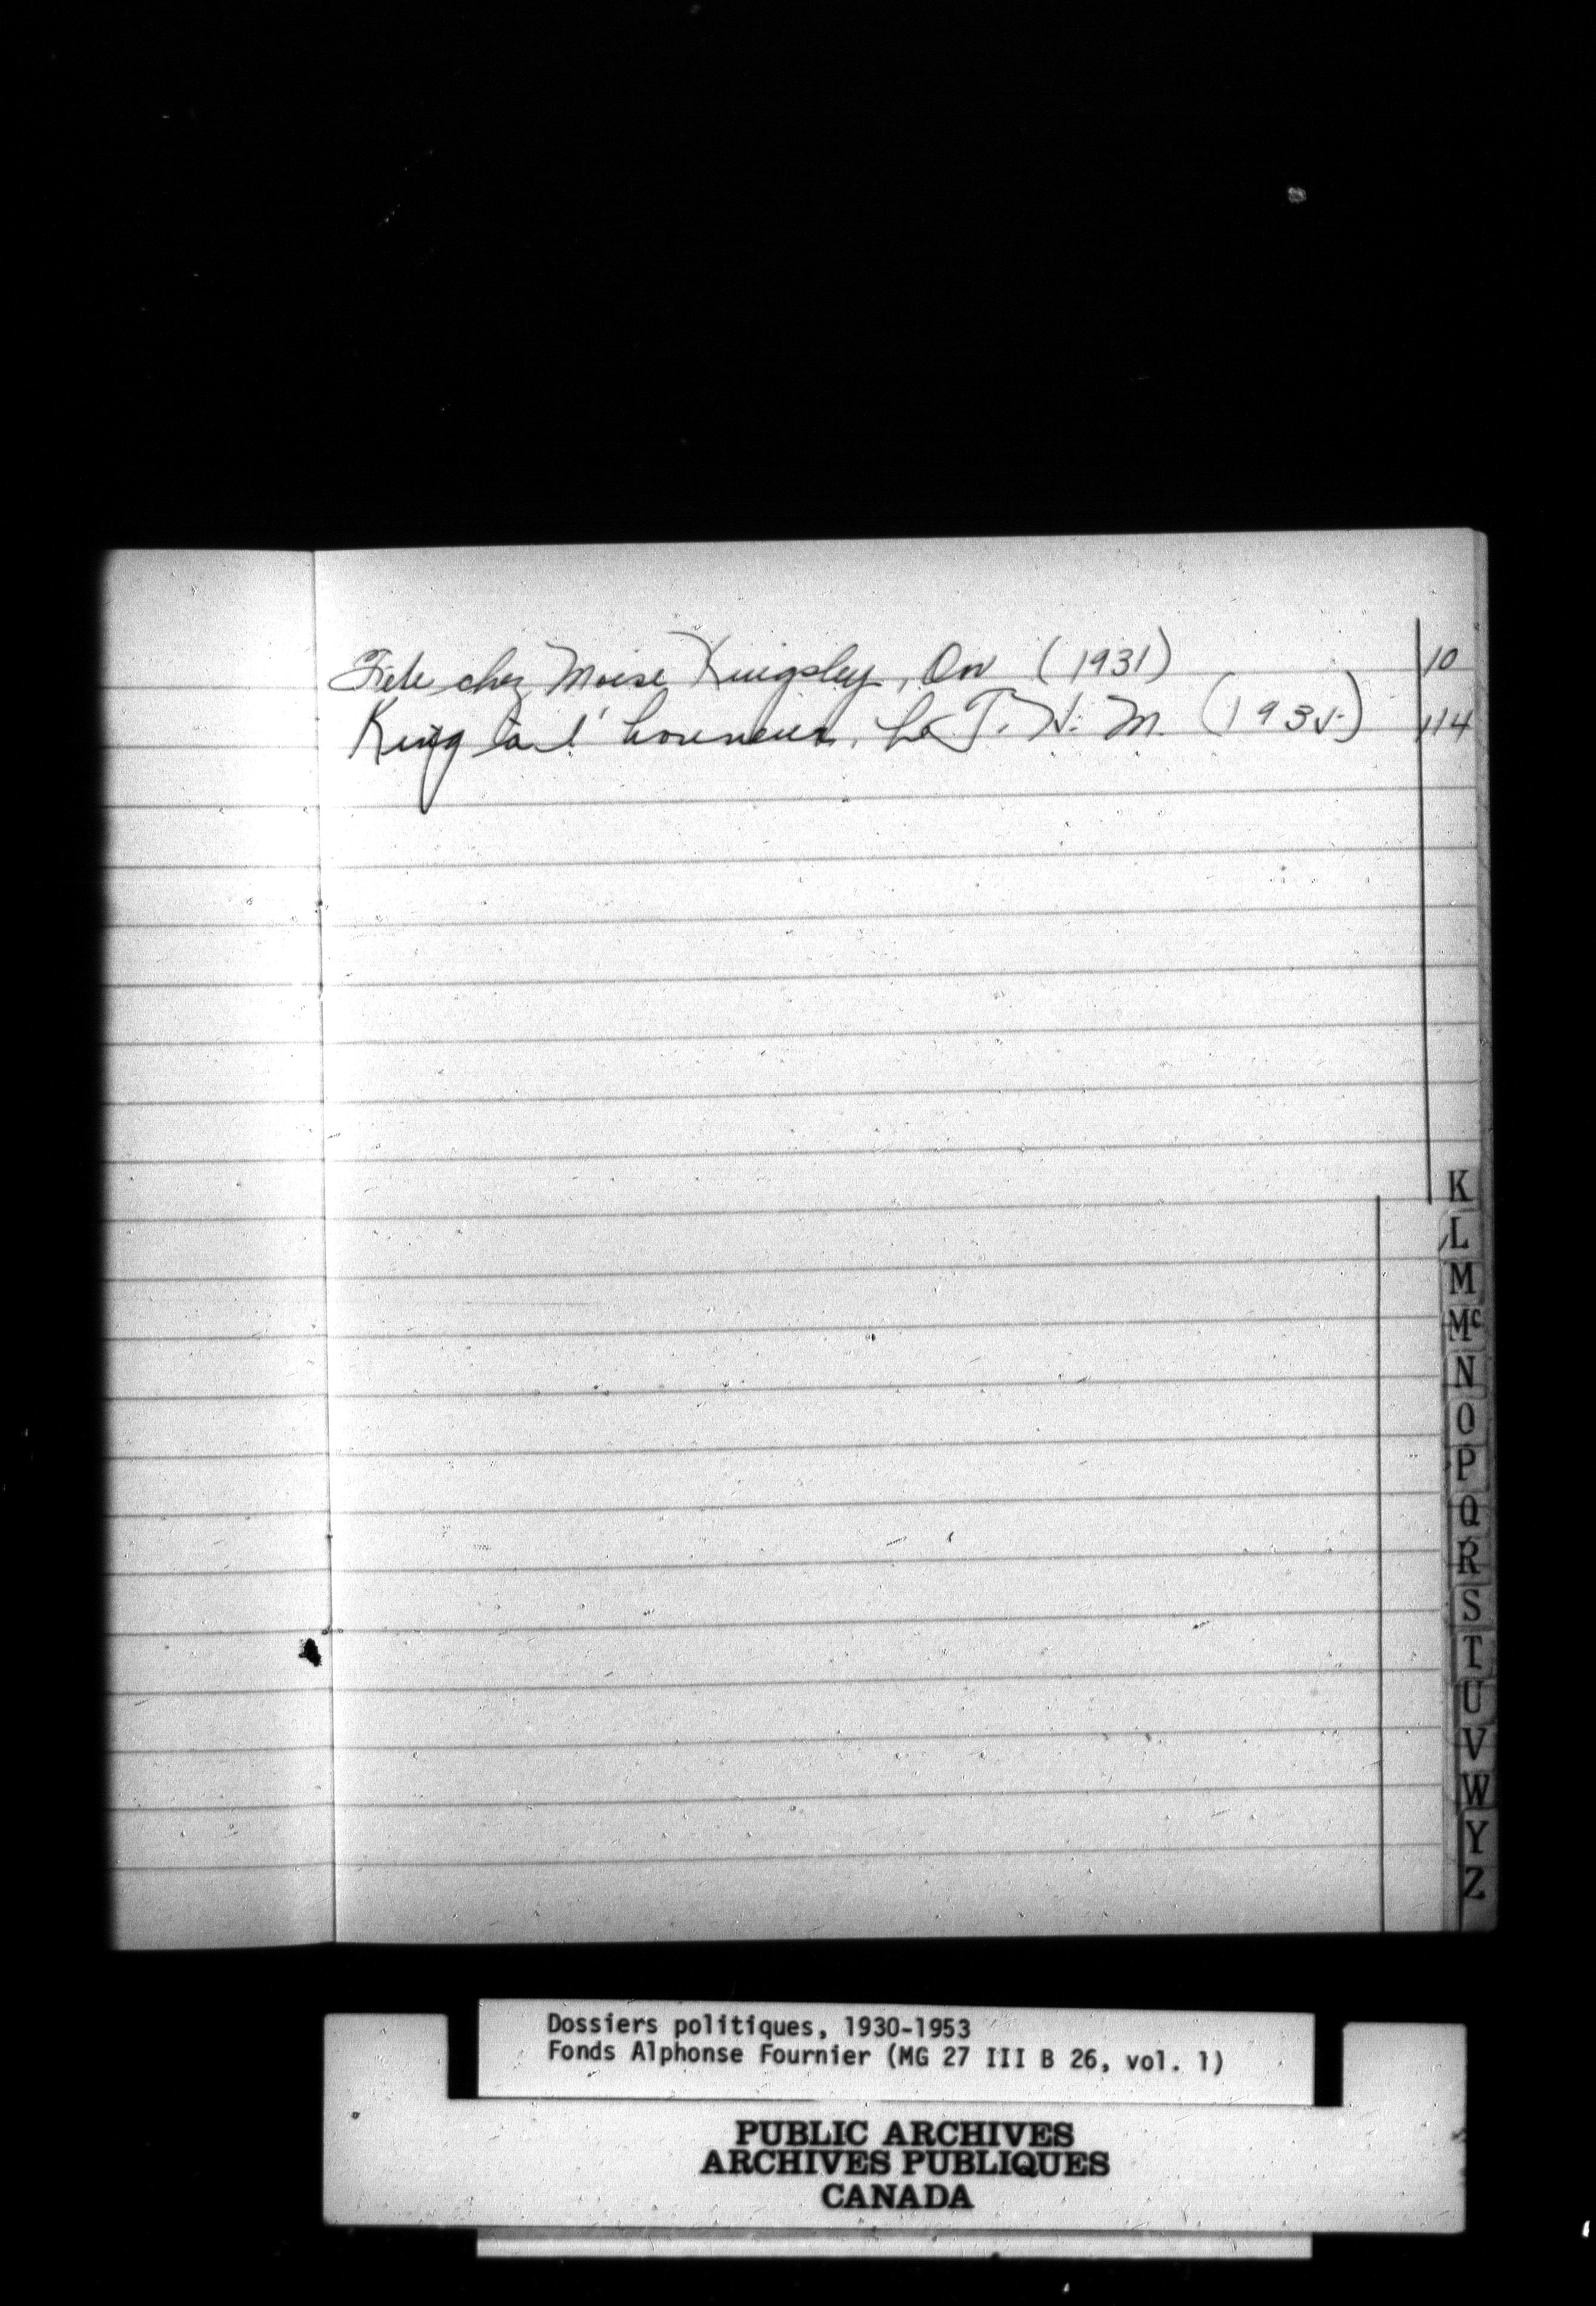 Fete chez Moise Kingsley, On (1931) 10
King à l'honneur, Le T. H. M. (1935) 114
K
L
M
Mc
N
O
P
Q
R
S
T
U
V
W
Y
Z
Dossiers politiques, 1930-1953
Fonds Alphonse Fournier (MG 27 III B 26, vol. 1)
PUBLIC ARCHIVES
ARCHIVES PUBLIQUES
CANADA